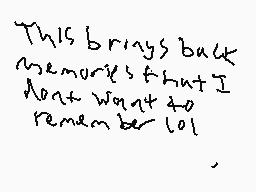 This brings back
memories that I
dont want to
remember lol